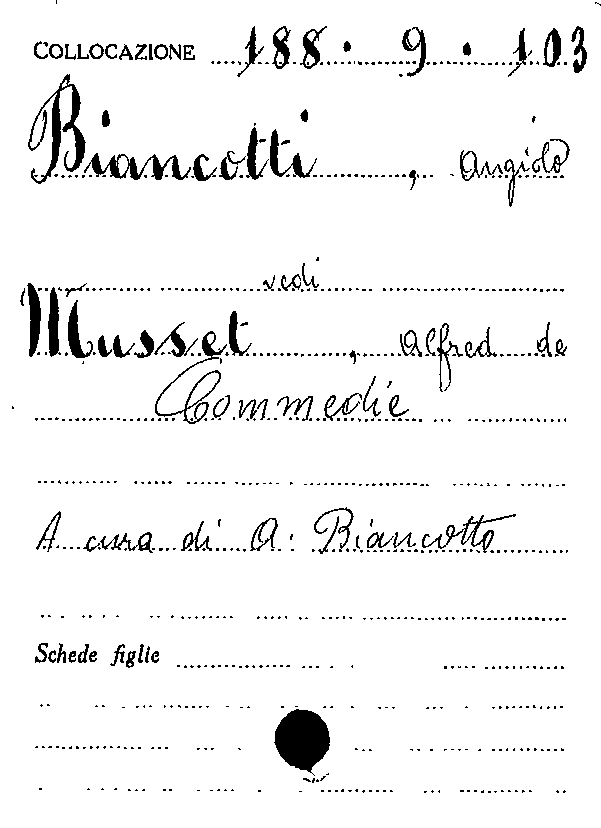 COLLOCAZIONE 188 . 9 . 103
Biancotti , Angiolo
vedi
Musset , Alfred de
Commedie
A cura di A. Biancotto
Schede figlie